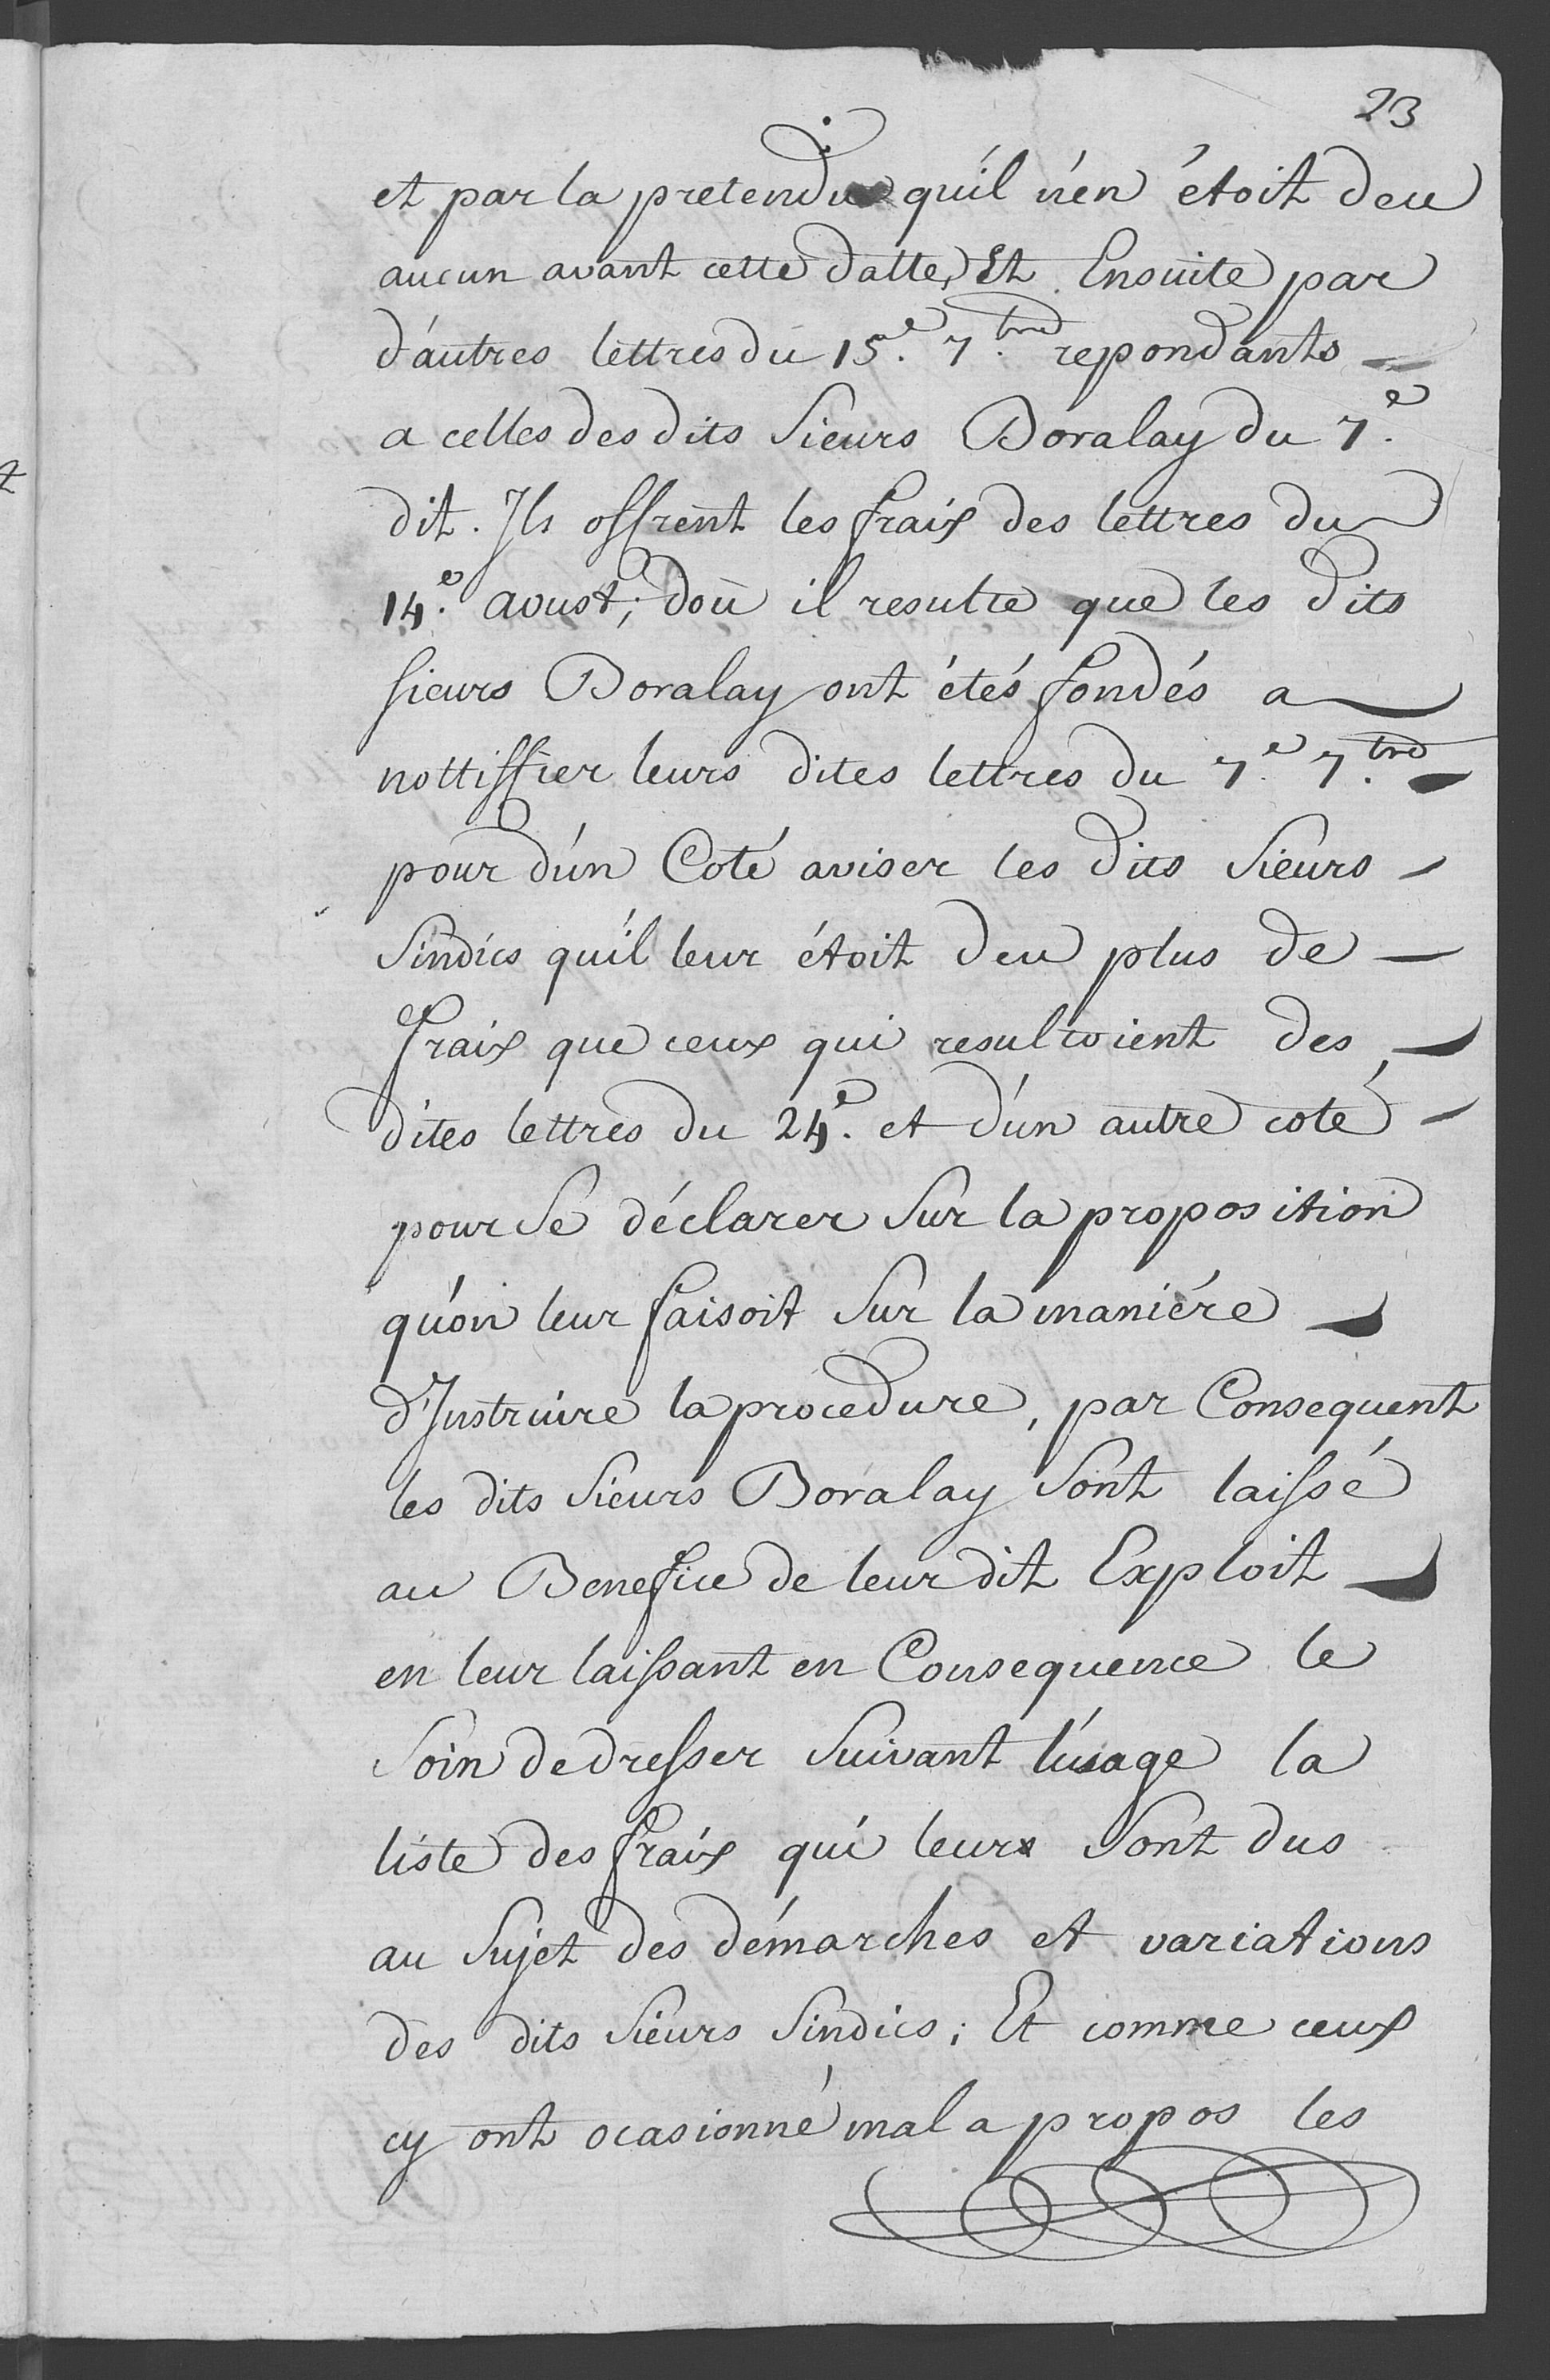 23
et par la pretendu qu'il n'en étoit deu
aucun avant cette datte, Et Ensuite par
d'autres lettres du 15.e 7.bre repondants
a celles des dits Sieurs Boralay du 7.e
dit. Ils offrent les fraix des lettres du
14.e aoust; doù il resulte que les dits
sieurs Boralay ont étés fondés a
nottiffier leurs dites lettres du 7.e 7.bre
pour d'un Coté aviser les dits Sieurs
Sindics qu'il leur étoit deu plus de
fraix que ceux qui resultoient des
dites lettres du 24.e et d'un autre coté
pour Se déclarer Sur la proposition
qu'on leur faisoit Sur la maniére
d'Instruire la procedure, par Consequent
les dits Sieurs Boralay Sont laissé
au Benefice de leur dit Exploit
en leur laissant en Consequence le
Soin de dresser Suivant l'usage la
liste des fraix qui leur Sont dus
au Sujet des démarches et variations
des dits Sieurs Sindics; Et comme ceux
cy ont ocasionné mal a propos les